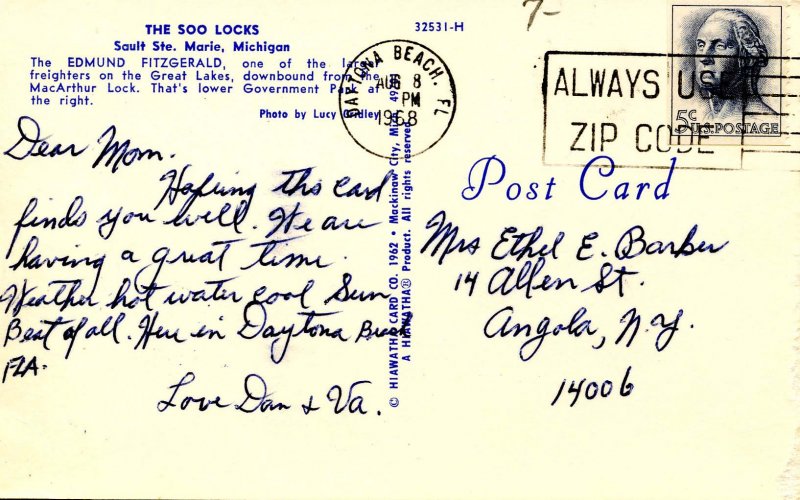 THE SOO LOCKS
Sault Ste. Marie, Michigan
The EDMUND FITZGERALD, one of the large
freighters on the Great Lakes, downbound from the
MacArthur Lock. That's lower Government Park at
the right.
Photo by Lucy Gridley
32531-H
7-
DAYTONA BEACH, FL
AUG 8
PM
1968
ALWAYS USE
ZIP CODE
5c
U.S. POSTAGE
Post Card
Dear Mom.
Hoping this card
finds you well. We are
having a great time.
Weather hot water cool Sun
Best of all. Here in Daytona Beach
FLA.
Love Dan & Va.
© HIAWATHA CARD CO. 1962 • Mackinaw City, Mich. 49701
A HIAWATHA® Product. All rights reserved.
Mrs Ethel E. Barber
14 Allen St.
Angola, N.Y.
14006